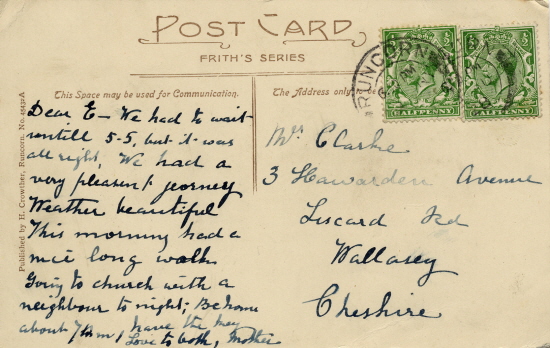 POST CARD
FRITH'S SERIES
This Space may be used for Communication.
The Address only
Published by H. Crowther, Runcorn. No.
RUNCORN
HALFPENNY
HALFPENNY
Dear E- We had to wait
untill 5-5, but it was
all right, We had a
very pleasent jeorney
Weather beautiful
This morning had a
nice long walk
Going to church with a
neighbour to night; Be home
about 7
have the key
Love to both, Mother
Mrs Clarke
3 Hawarden Avenue
Liscard Rd
Wallasey
Cheshire